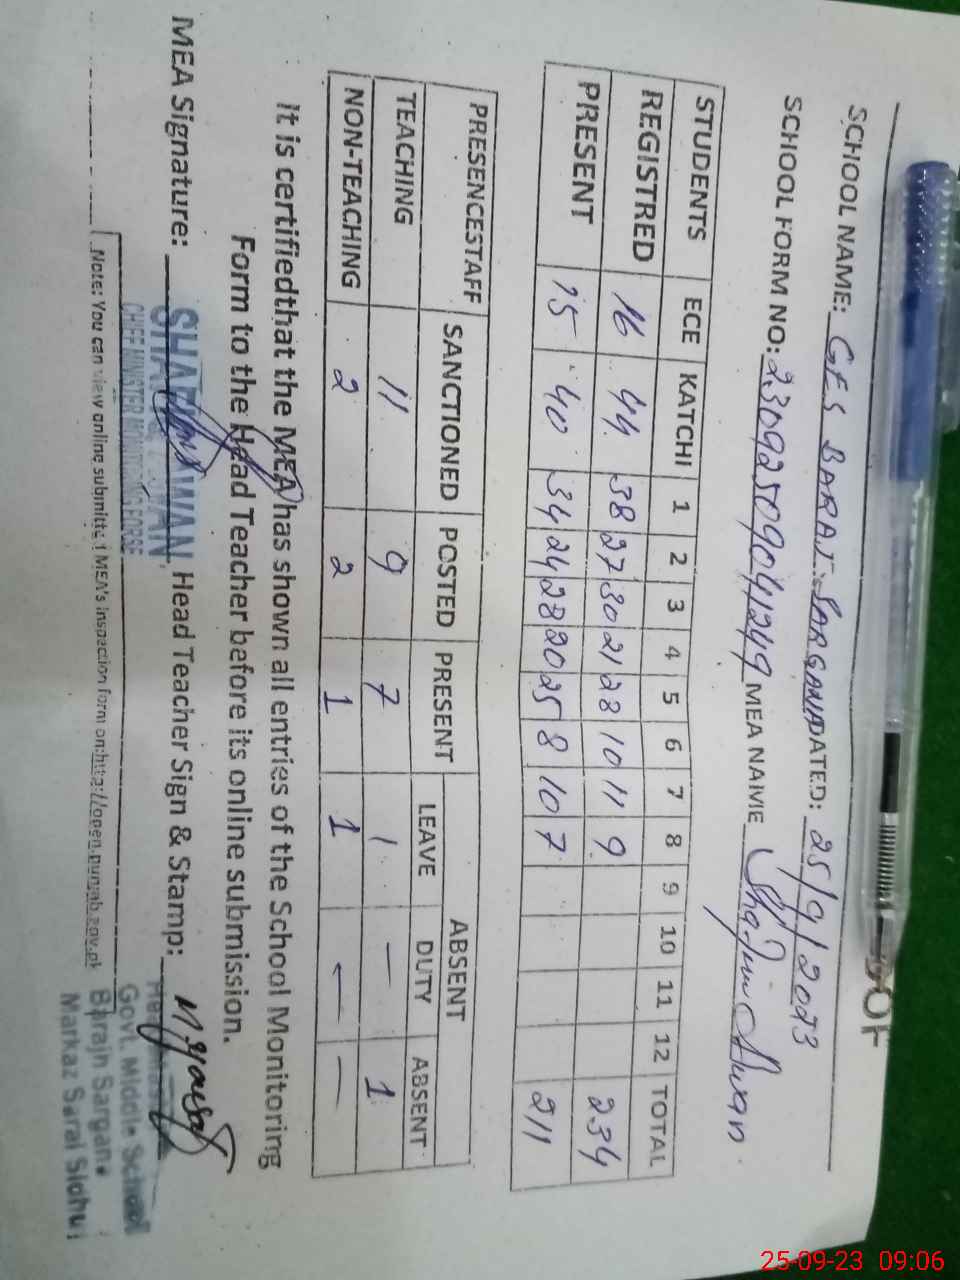 OF
SCHOOL NAME: GES BARAJ SARGANA DATED: 25/9/2023
SCHOOL FORM NO: 23092509041249 MEA NAME Awan
STUDENTS ECE KATCHI 1 2 3 4 5 6 7 8 9 10 11 12 TOTAL
REGISTRED 16 44 38 27 30 21 28 10 11 9 234
PRESENT 15 40 34 24 28 20 25 8 10 7 211
PRESENCESTAFF SANCTIONED POSTED PRESENT ABSENT
LEAVE DUTY ABSENT
TEACHING 11 9 7 1 — 1
NON-TEACHING 2 2 1 1 — —
It is certifiedthat the MEA has shown all entries of the School Monitoring
Form to the Head Teacher before its online submission.
MEA Signature: Head Teacher Sign & Stamp:
AWAN
CHIEF MINISTER MONITORING FORSE
Govt. Middle School
Barajn Sargana
Markaz Sarai Sidhu
Note: You can view online submitted MEA's inspection form on:http://open.punjab.gov.pk
25-09-23 09:06